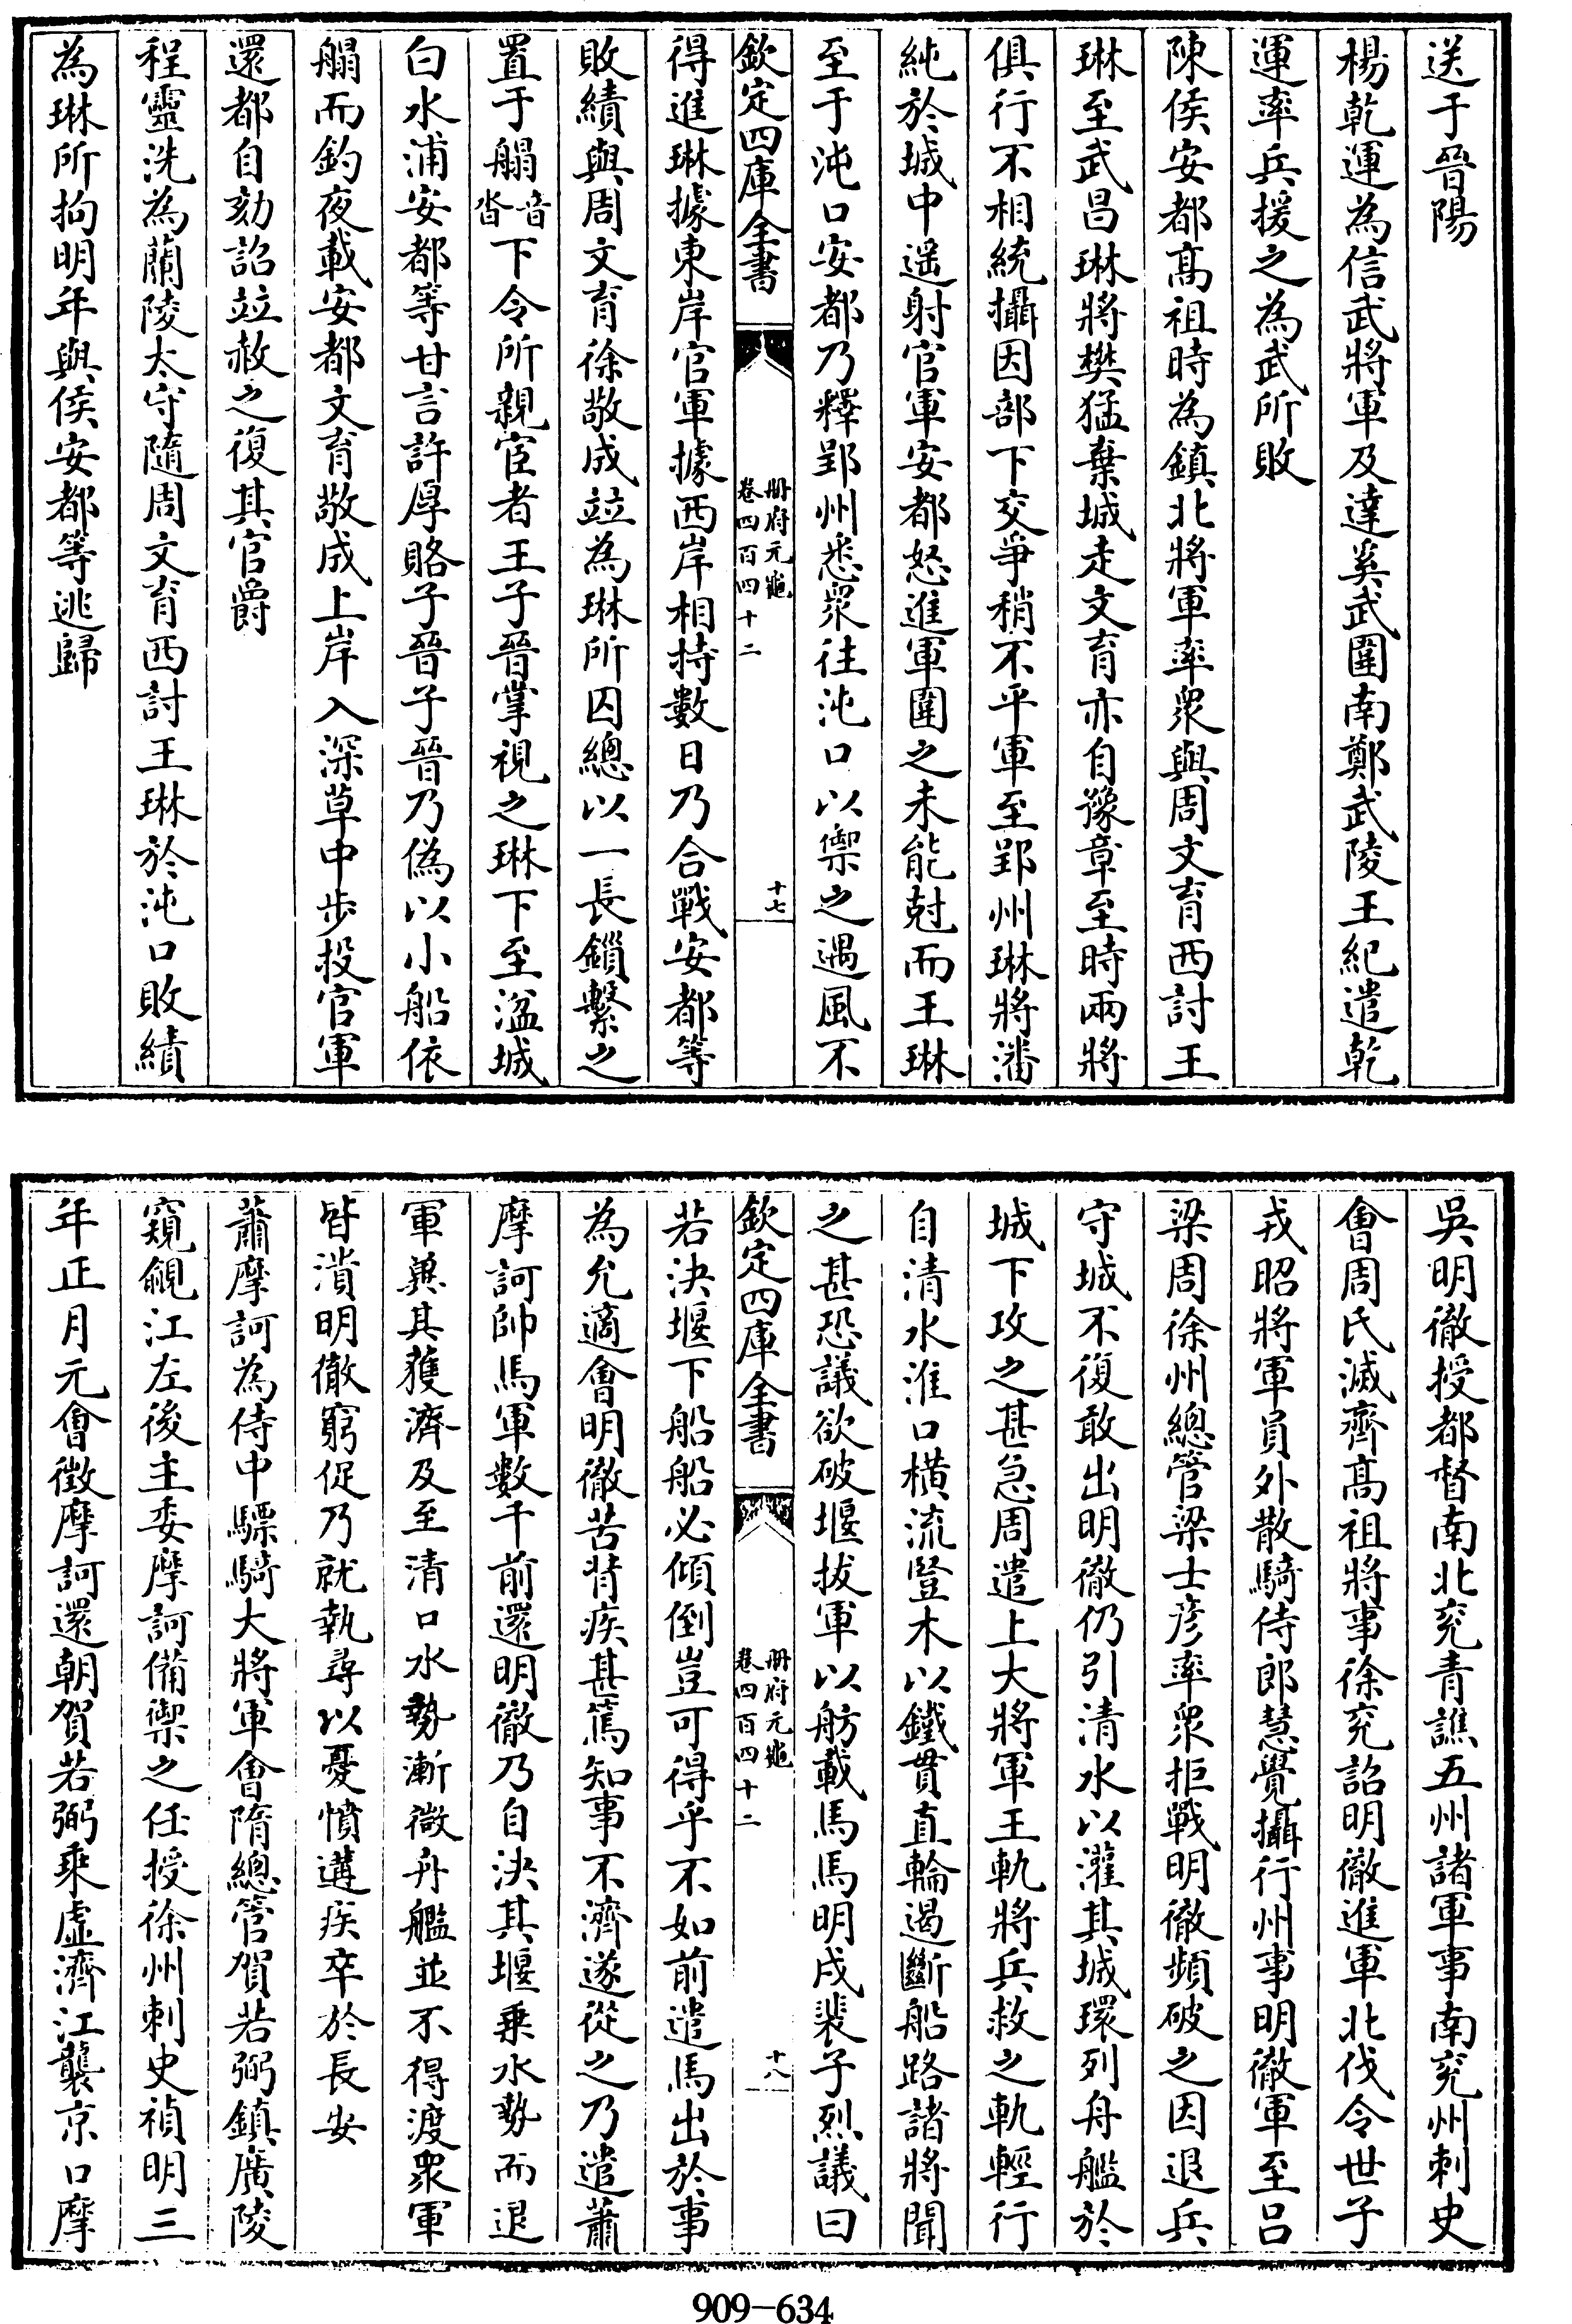 送于晉陽
楊乾運為信武將軍及達奚武圍南鄭武陵王紀遣乾
運率兵援之為武所敗
陳侯安都髙祖時為鎮北將軍率衆與周文育西討王
琳至武昌琳將樊猛棄城走文育亦自豫章至時兩將
俱行不相統攝因部下交爭稍不平軍至郢州琳將潘
純於城中遥射官軍安都怒進軍圍之未能尅而王琳
至于沌口安都乃釋郢州悉衆往沌口以禦之遇風不
欽定四庫全書
冊府元龜
卷四百四十二
十七
得進琳據東岸官軍據西岸相持數日乃合戰安都等
敗績與周文育徐敬成竝為琳所囚總以一長鎻繫之
置于䑽音沓下令所親宦者王子晉掌視之琳下至湓城
白水浦安都等甘言許厚賂子晉子晉乃偽以小船依
䑽而釣夜載安都文育敬成上岸入深草中步投官軍
還都自劾詔竝赦之復其官爵
程靈洗為蘭陵太守隨周文育西討王琳於沌口敗績
為琳所拘明年與侯安都等逃歸
吳明徹授都督南北兖青譙五州諸軍事南兖州刺史
會周氏滅齊髙祖將事徐兖詔明徹進軍北伐令世子
戎昭將軍員外散騎侍郎慧覺攝行州事明徹軍至呂
梁周徐州總管梁士彦率衆拒戰明徹頻破之因退兵
守城不復敢出明徹仍引清水以灌其城環列舟艦於
城下攻之甚急周遣上大將軍王軌將兵救之軌輕行
自清水淮口橫流豎木以鐵貫直輪遏斷船路諸將聞
之甚恐議欲破堰拔軍以舫載馬馬明戍裴子烈議曰
欽定四庫全書
冊府元龜
卷四百四十二
十八
若決堰下船船必傾倒豈可得乎不如前遣馬出於事
為允適會明徹苦背疾甚篤知事不濟遂從之乃遣蕭
摩訶帥馬軍數千前還明徹乃自決其堰乗水勢而退
軍兾其獲濟及至清口水勢漸微舟艦並不得渡衆軍
皆潰明徹窮促乃就執尋以憂憤遘疾卒於長安
蕭摩訶為侍中驃騎大將軍會隋總管賀若弼鎮廣陵
窺覦江左後主委摩訶備禦之任授徐州刺史禎明三
年正月元會徵摩訶還朝賀若弼乗虛濟江襲京口摩
909-634